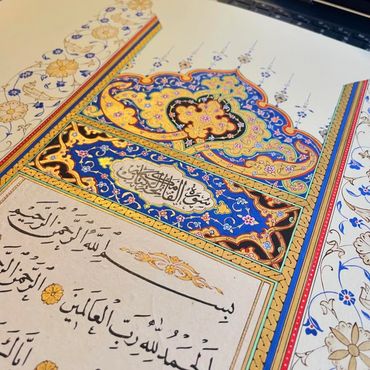 سورة الفاتحة
بِسْمِ اللّٰهِ الرَّحْمٰنِ الرَّحِيمِ
اَلْحَمْدُ لِلّٰهِ رَبِّ الْعَالَمِينَ الرَّحْمٰنِ
اِيَّاكَ